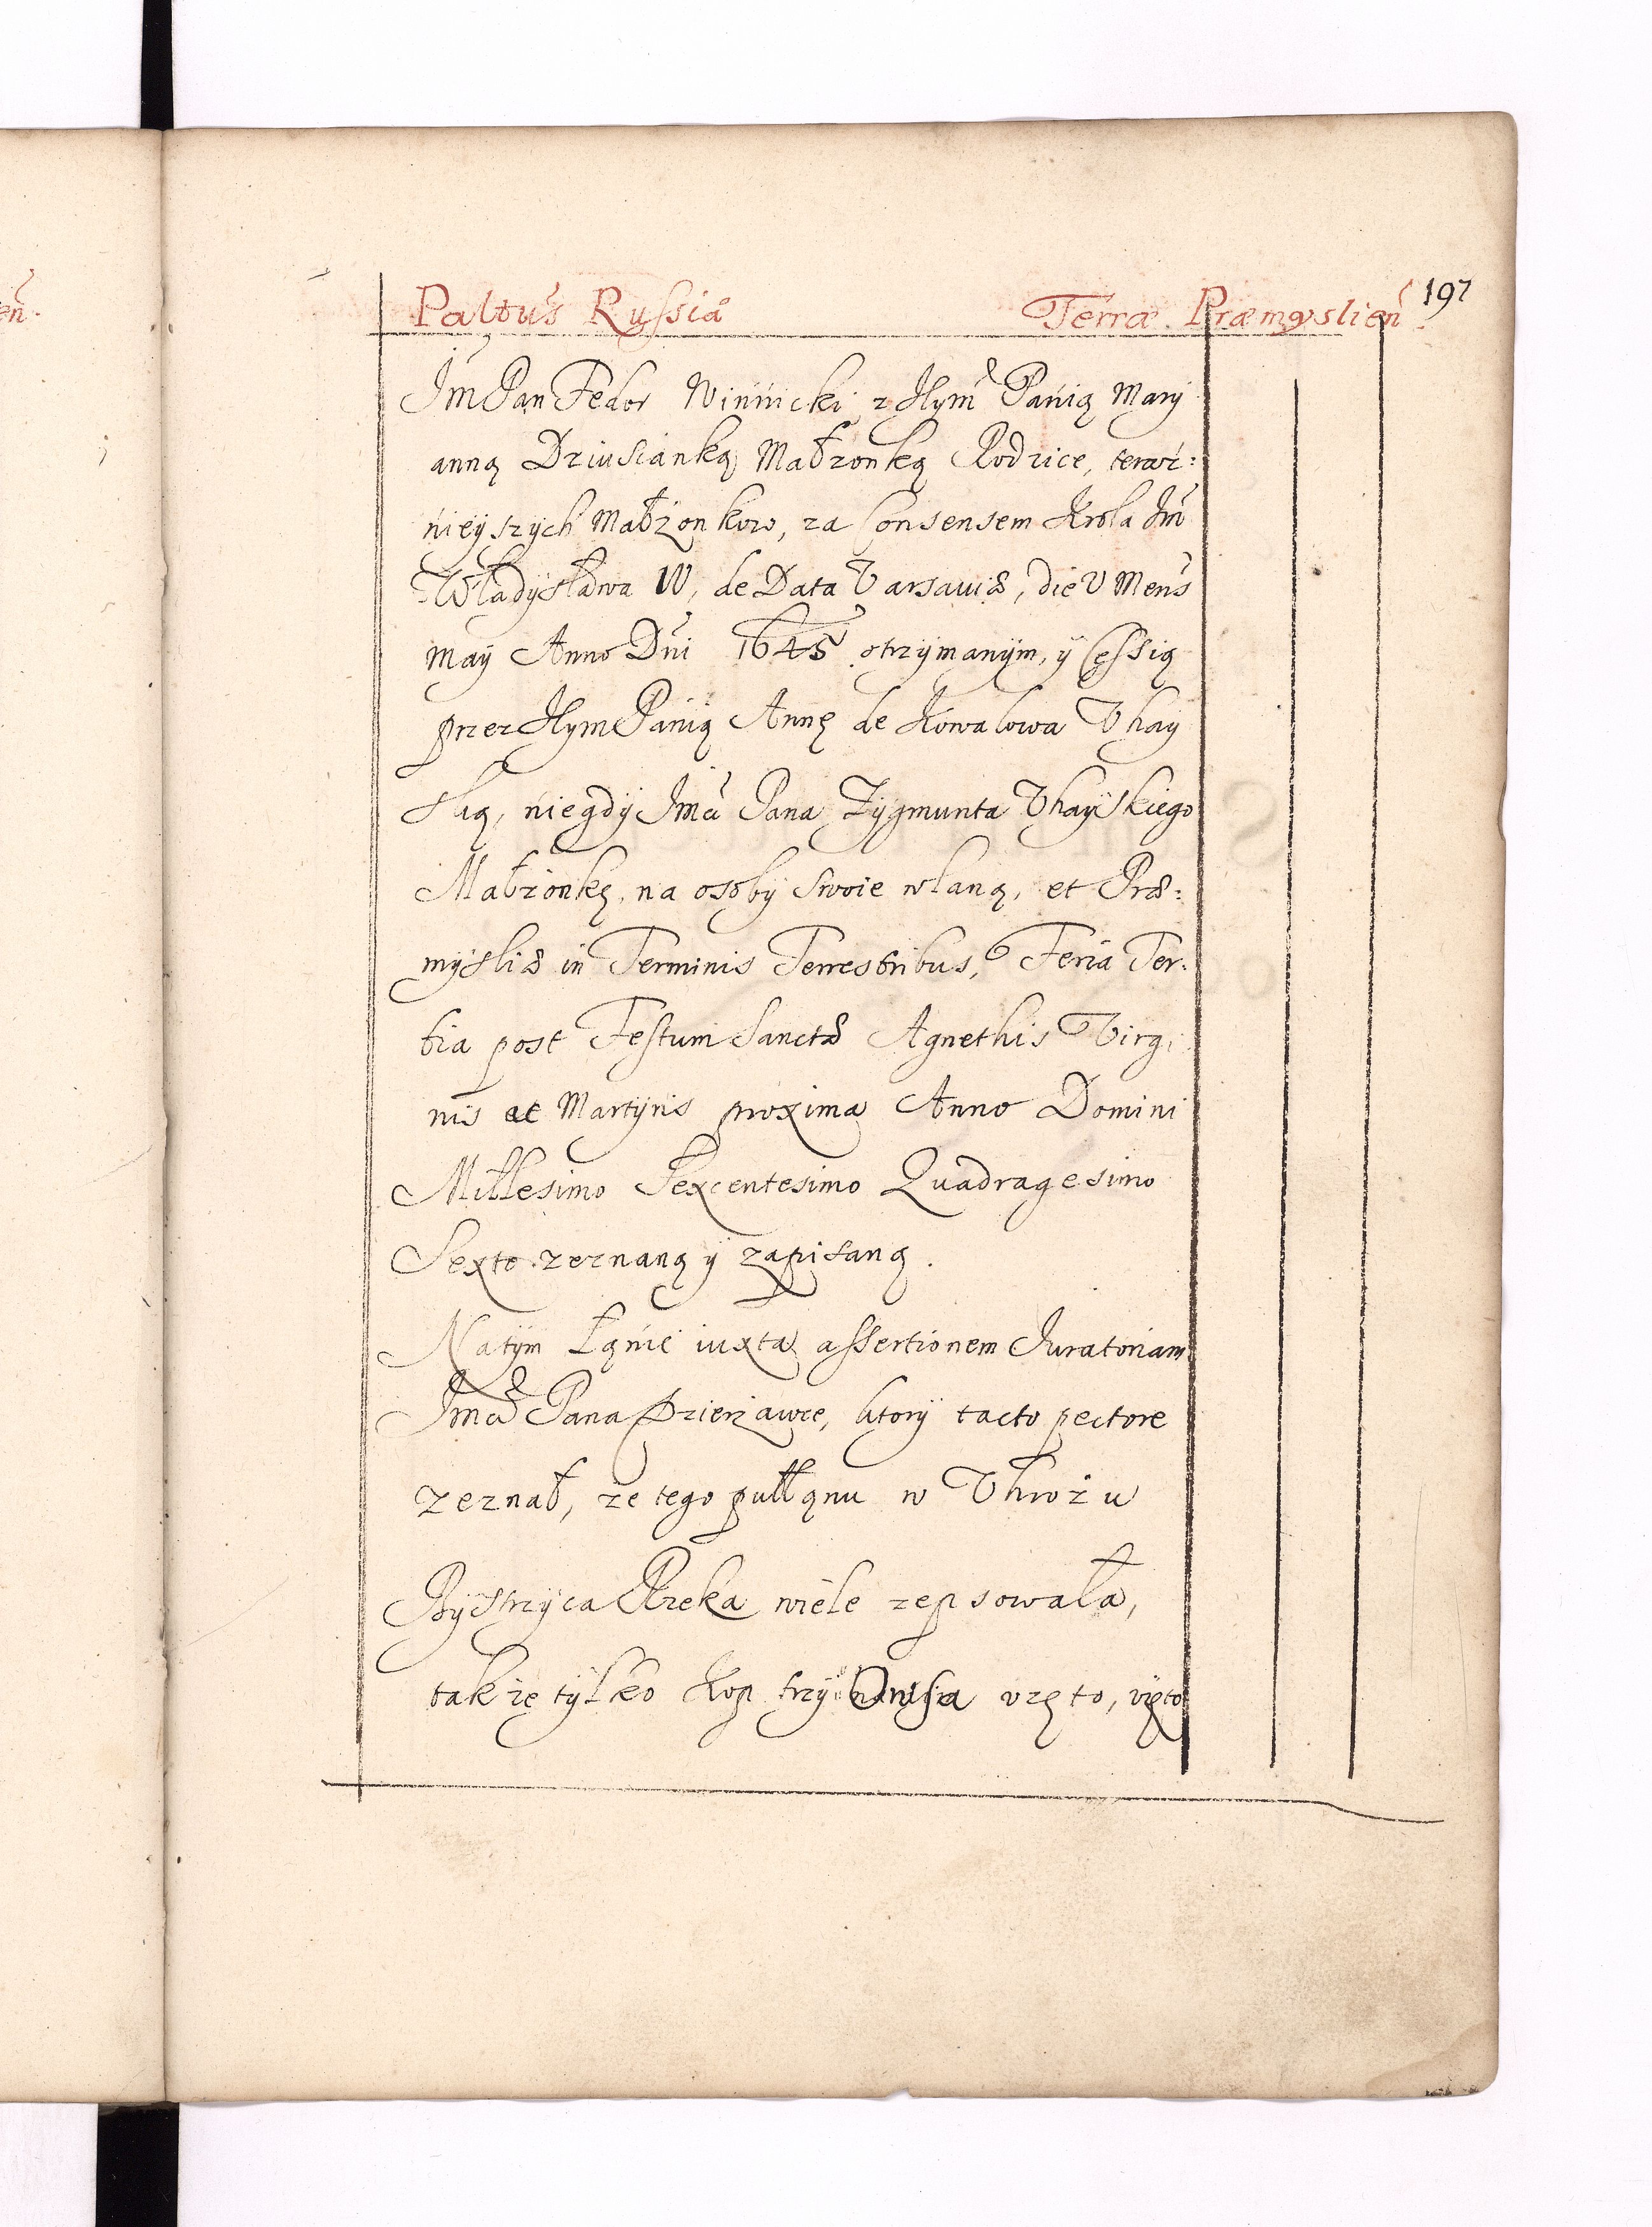 Paltus Russiæ Terræ Præmyslień 197
JmPan Fedor Winnicki z Jłym Panią Mary
anną Dziusianką Małżonką Rodzice, teraz:
nieyszÿch Małżonkow, za Consensem Krola Jm
Władÿsława IV, de Data Varsauiæ, die V Mens
maÿ Anno Dni 1645 otrzÿmanÿm, ÿ Cessią
przez JłymPanią Annę de Kowalowa Vhaÿ
ską, niegdÿ Jmći Pana Zÿgmunta Vhaÿskiego
Małżonkę, na osobÿ swoie wlaną, et Præ:
mÿsliæ in Terminis Terrestribus, Feria Ter:
tia post Festum Sanctæ Agnethis Virgi
nis ac Martÿris proxima Anno Domini
Millesimo Sexcentesimo Quadragesimo
Sexto zeznaną ÿ zapisaną.
Natÿm Łąnie iuxta assertionem Juratoriam
Jmći Pana Dzierzawce, ktorÿ tacto pectore
zeznał, ze tego pułłąnu w Vhrożu
Bÿstrzÿca Rzeka wiele zepsowała,
takze tÿlko Kop trzÿ Owsa vzęto,